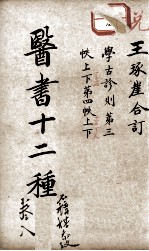 王琢崖合订
學古診則第三
帙上下第四帙上下
醫書十二種